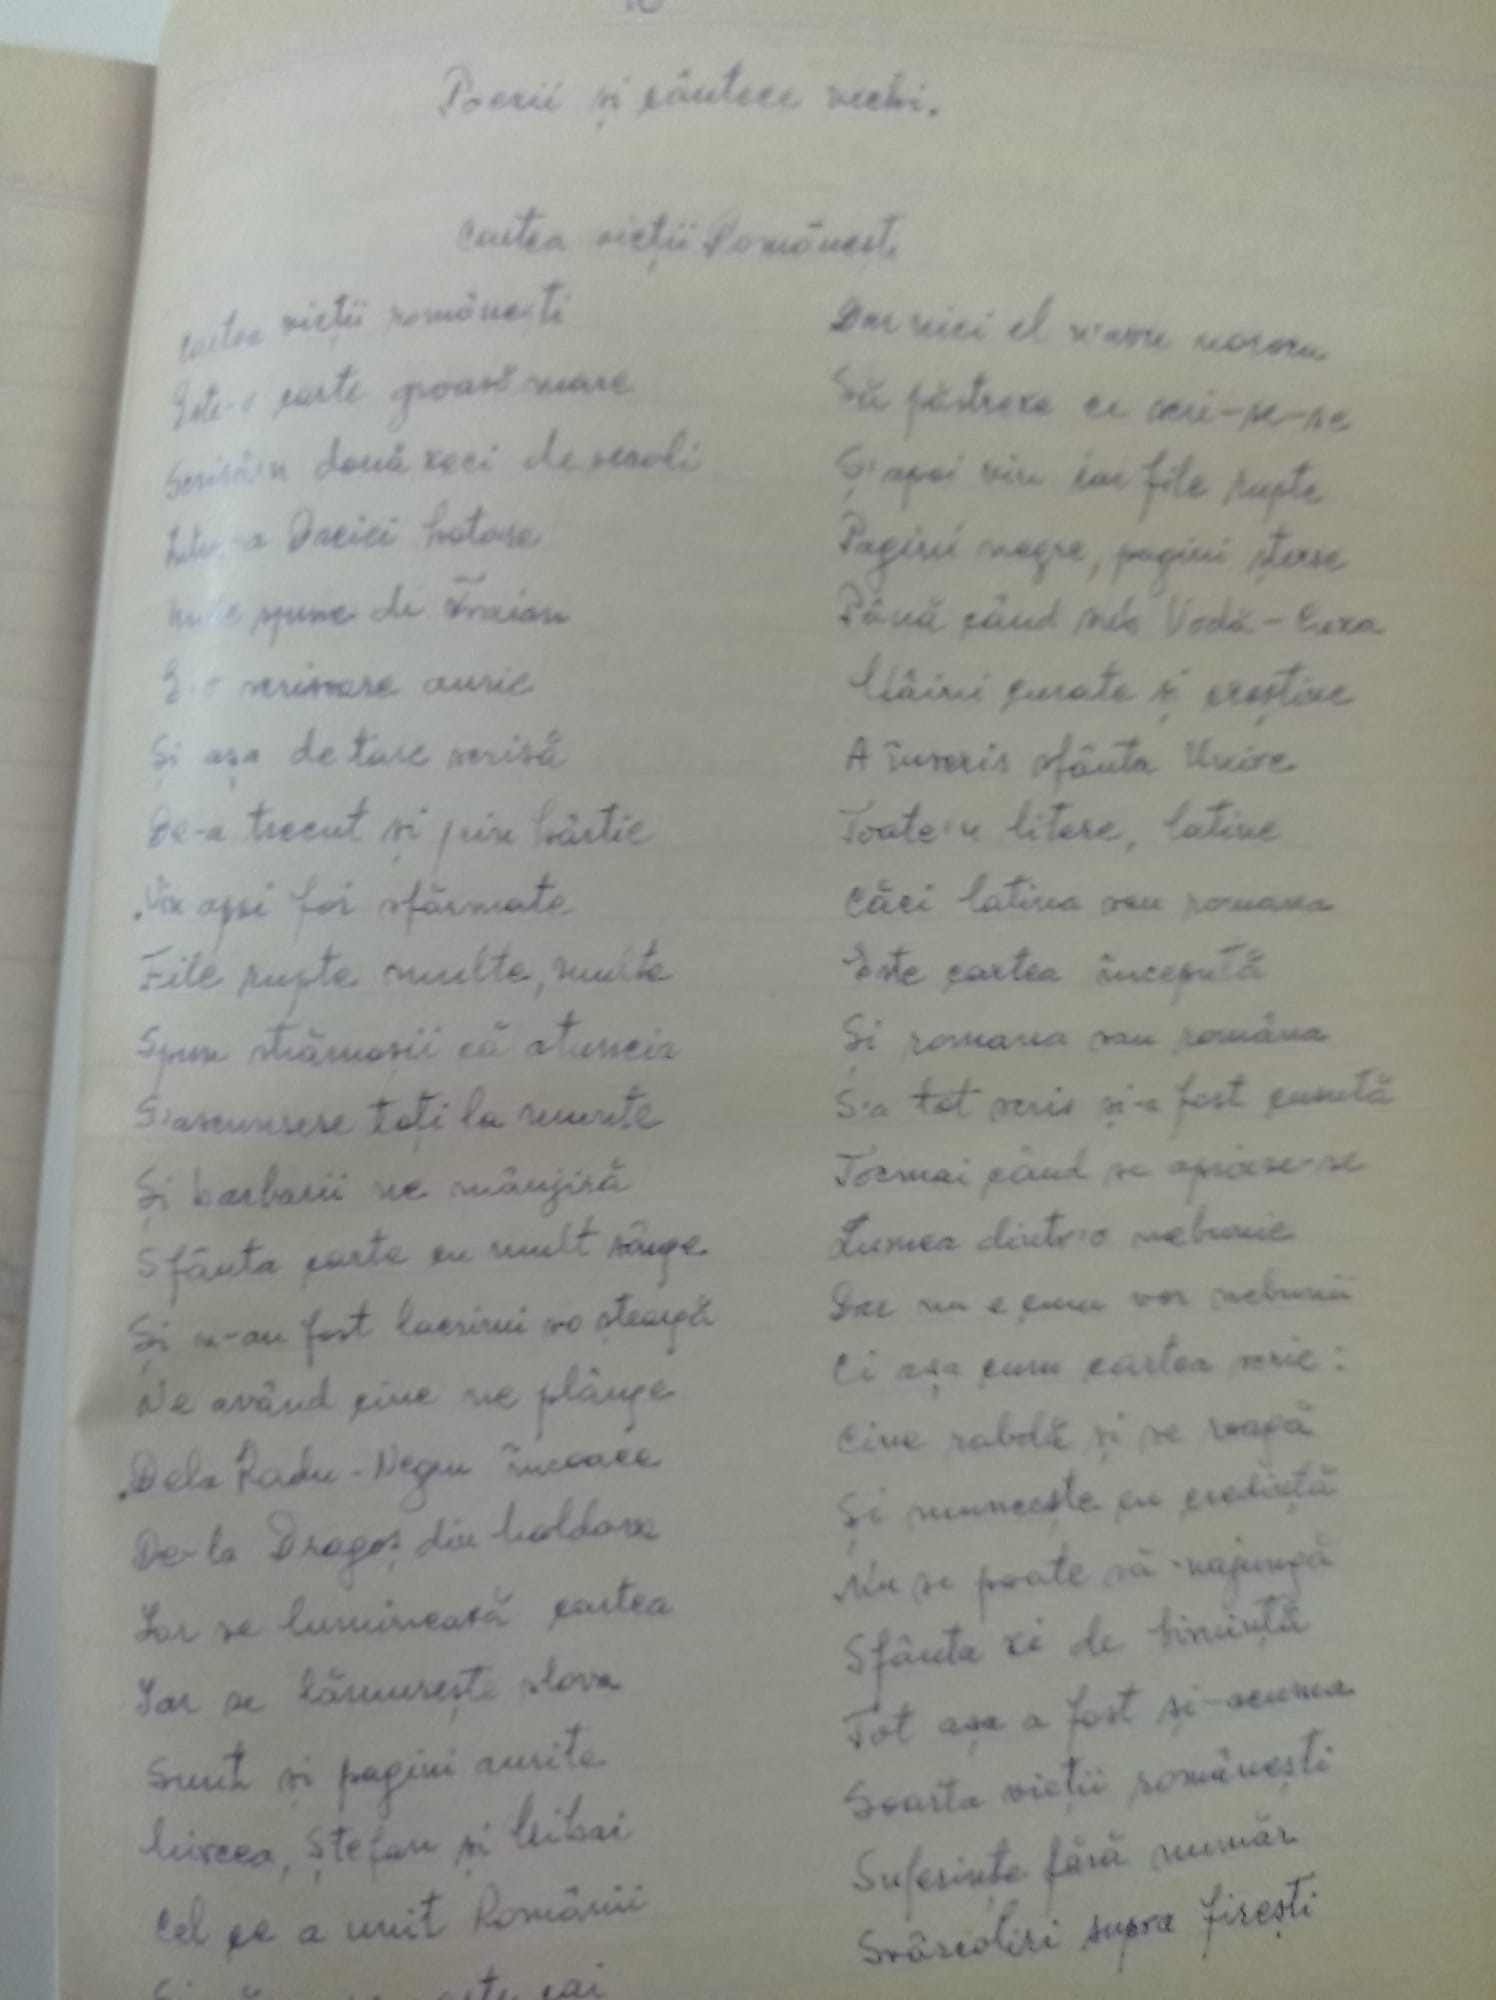 Poezii și cântece vechi.
Cartea vieții Românești
Cartea vieții românești
Este-o carte groasă mare
Scrisă'n două zeci de secoli
Într'-a Daciei hotare
spune de Traian
E-o scrisoare aurie
Și așa de tare scrisă
De-a trecut și prin hârtie
apoi foi sfărmate
File rupte multe, multe
Spun strămoșii că atuncia
S'ascunsese toți la munte
Și barbarii ne mânjiră
Sfânta carte cu mult sânge
Și n-au fost lacrimi s'o șteargă
Ne având cine ne plânge
Dela Radu-Negru încoace
De-la Dragoș din Moldova
Iar se luminează cartea
Iar se lămurește slova
Sunt și pagini aurite
Mircea, Ștefan și Mihai
Cel ce a unit Românii
Și
Dar nici el n'avu norocu
Să păstreze ce scri-se-se
Ș'apoi vin iar file rupte
Pagini negre, pagini șterse
Până când sub Vodă-Cuza
Mâini curate și creștine
A înscris sfânta Unire
Toate'n litere, latine
Căci latina sau romana
Este cartea începută
Și romana sau româna
S'a tot scris și-a fost cusută
Tocmai când se aprinse-se
Lumea dintr'o nebunie
Dar nu e cum vor nebunii
Ci așa cum cartea scrie:
Cine rabdă și se roagă
Și muncește cu credință
Nu se poate să n'ajungă
Sfânta zi de biruință
Tot așa a fost și-acuma
Soarta vieții românești
Suferințe fără număr
Svârcoliri supra firești